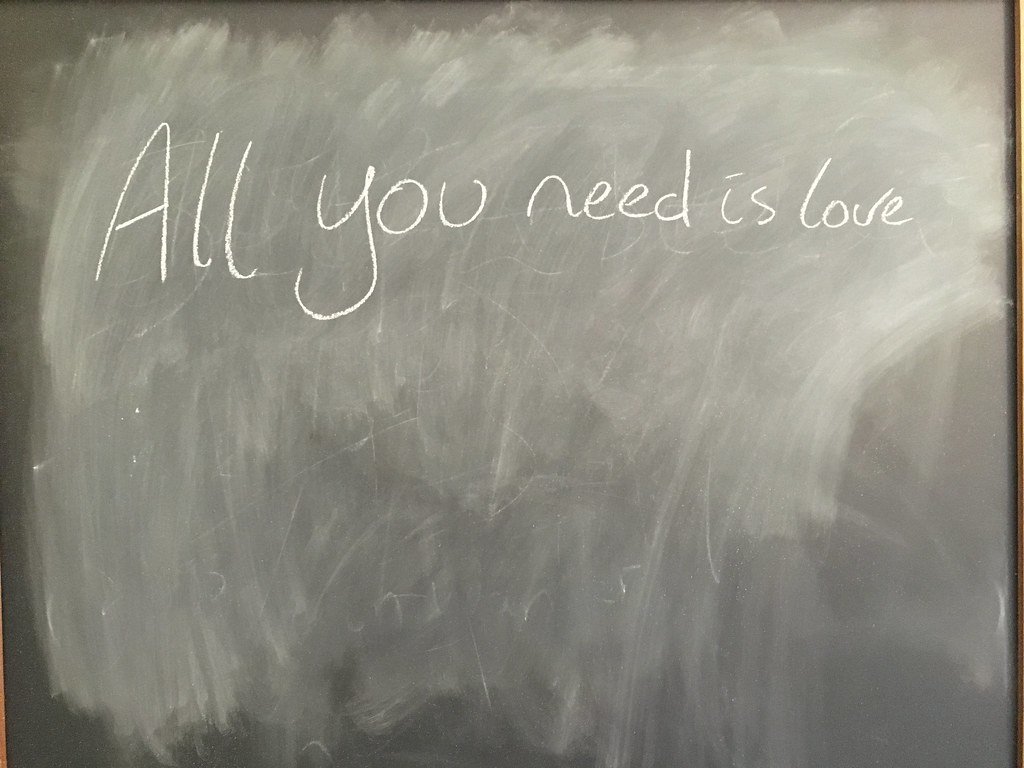 All you need is love